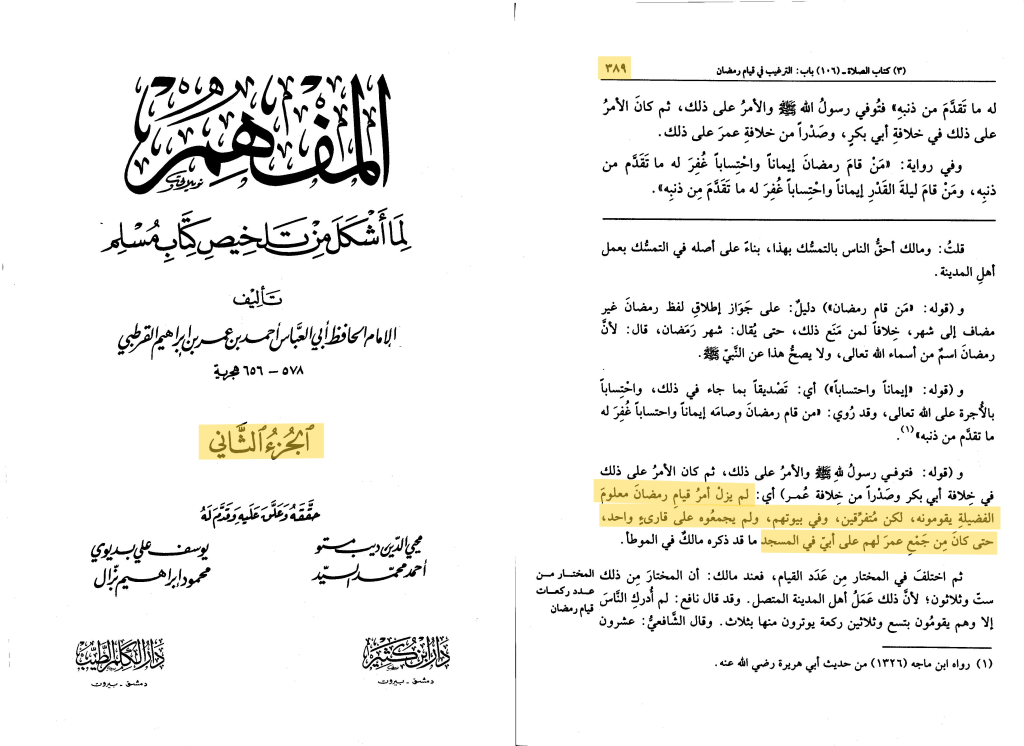 المفهم
لما أشكل من تلخيص كتاب مسلم
تأليف
الإمام الحافظ أبي العباس أحمد بن عمر بن إبراهيم القرطبي
٥٧٨ - ٦٥٦ هجرية
الجزء الثاني
حققه وعلق عليه وقدم له
محيي الدين ديب مستو
يوسف علي بديوي
أحمد محمد السيد
محمود إبراهيم نزال
دار ابن كثير
دمشق - بيروت
دار الكلم الطيب
دمشق - بيروت
(٣) كتاب الصلاة - (١٠٦) باب: الترغيب في قيام رمضان
٣٨٩
له ما تَقدَّمَ من ذنبهِ» فتُوفي رسولُ الله ﷺ والأمرُ على ذلك، ثم كانَ الأمرُ
على ذلك في خلافةِ أبي بكرٍ، وصَدْراً من خلافةِ عمرَ على ذلك.
وفي رواية: «مَنْ قامَ رمضانَ إيماناً واحْتِساباً غُفِرَ له ما تَقَدَّم من
ذنبِه، ومَنْ قامَ ليلةَ القَدْرِ إيماناً واحْتِساباً غُفِرَ له ما تَقَدَّمَ مِن ذنبِه».
قلتُ: ومالك أحقُّ الناس بالتمسكِ بهذا، بناءً على أصله في التمسُّك بعمل
أهلِ المدينة.
و (قوله: «مَن قام رمضان») دليلٌ: على جَوَاز إطلاقِ لفظ رمضانَ غير
مضاف إلى شهر، خِلافاً لمن مَنَع ذلك، حتى يُقال: شهر رَمَضان، قال: لأنَّ
رمضانَ اسمٌ من أسماء الله تعالى، ولا يصحُّ هذا عن النَّبيِّ ﷺ.
و (قوله: «إيماناً واحتساباً») أي: تَصْديقاً بما جاء في ذلك، واحْتِساباً
بالأُجرة على الله تعالى، وقد رُوي: «من قام رمضانَ وصامَه إيماناً واحتساباً غُفِرَ له
ما تقدَّم من ذنبه»(١).
و (قوله: فتوفـي رسولُ لله ﷺ والأمرُ على ذلك، ثم كان الأمرُ على ذلك
في خِلافة أبي بكر وصَدْراً من خِلافة عُمر) أي: لم يزلْ أمرُ قيامِ رمضانَ معلومَ
الفضيلةِ يقومونه، لكن مُتفرِّقين، وفي بيوتهم، ولم يجمعُوه على قارىءٍ واحد،
حتى كانَ مِن جَمْعِ عمرَ لهم على أبيّ في المسجد ما قد ذكره مالكٌ في الموطأ.
ثم اختلفَ في المختار مِن عَدَد القيام، فعند مالك: أن المختارَ مِن ذلك
ستّ وثلاثون؛ لأنَّ ذلك عَمَلُ أهل المدينة المتصل. وقد قال نافع: لم أُدركِ النَّاسَ
إلا وهم يقومُون بتسع وثلاثين ركعة يوترون منها بثلاث. وقال الشَّافعيُّ: عشرون
المختـار مـن
عـدد ركعـات
قيام رمضان
(١) رواه ابن ماجه (١٣٢٦) من حديث أبي هريرة رضي الله عنه.